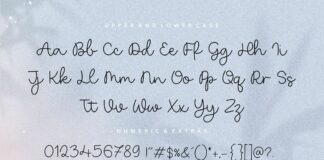 UPPER AND LOWER CASE
Aa Bb Cc Dd Ee Ff Gg Hh Ii
Jj Kk Ll Mm Nn Oo Pp Qq Rr Ss
Tt Uu Vv Ww Xx Yy Zz
NUMERIC & EXTRAS
0123456789 !"#$%&'()*+,-{}[]@?